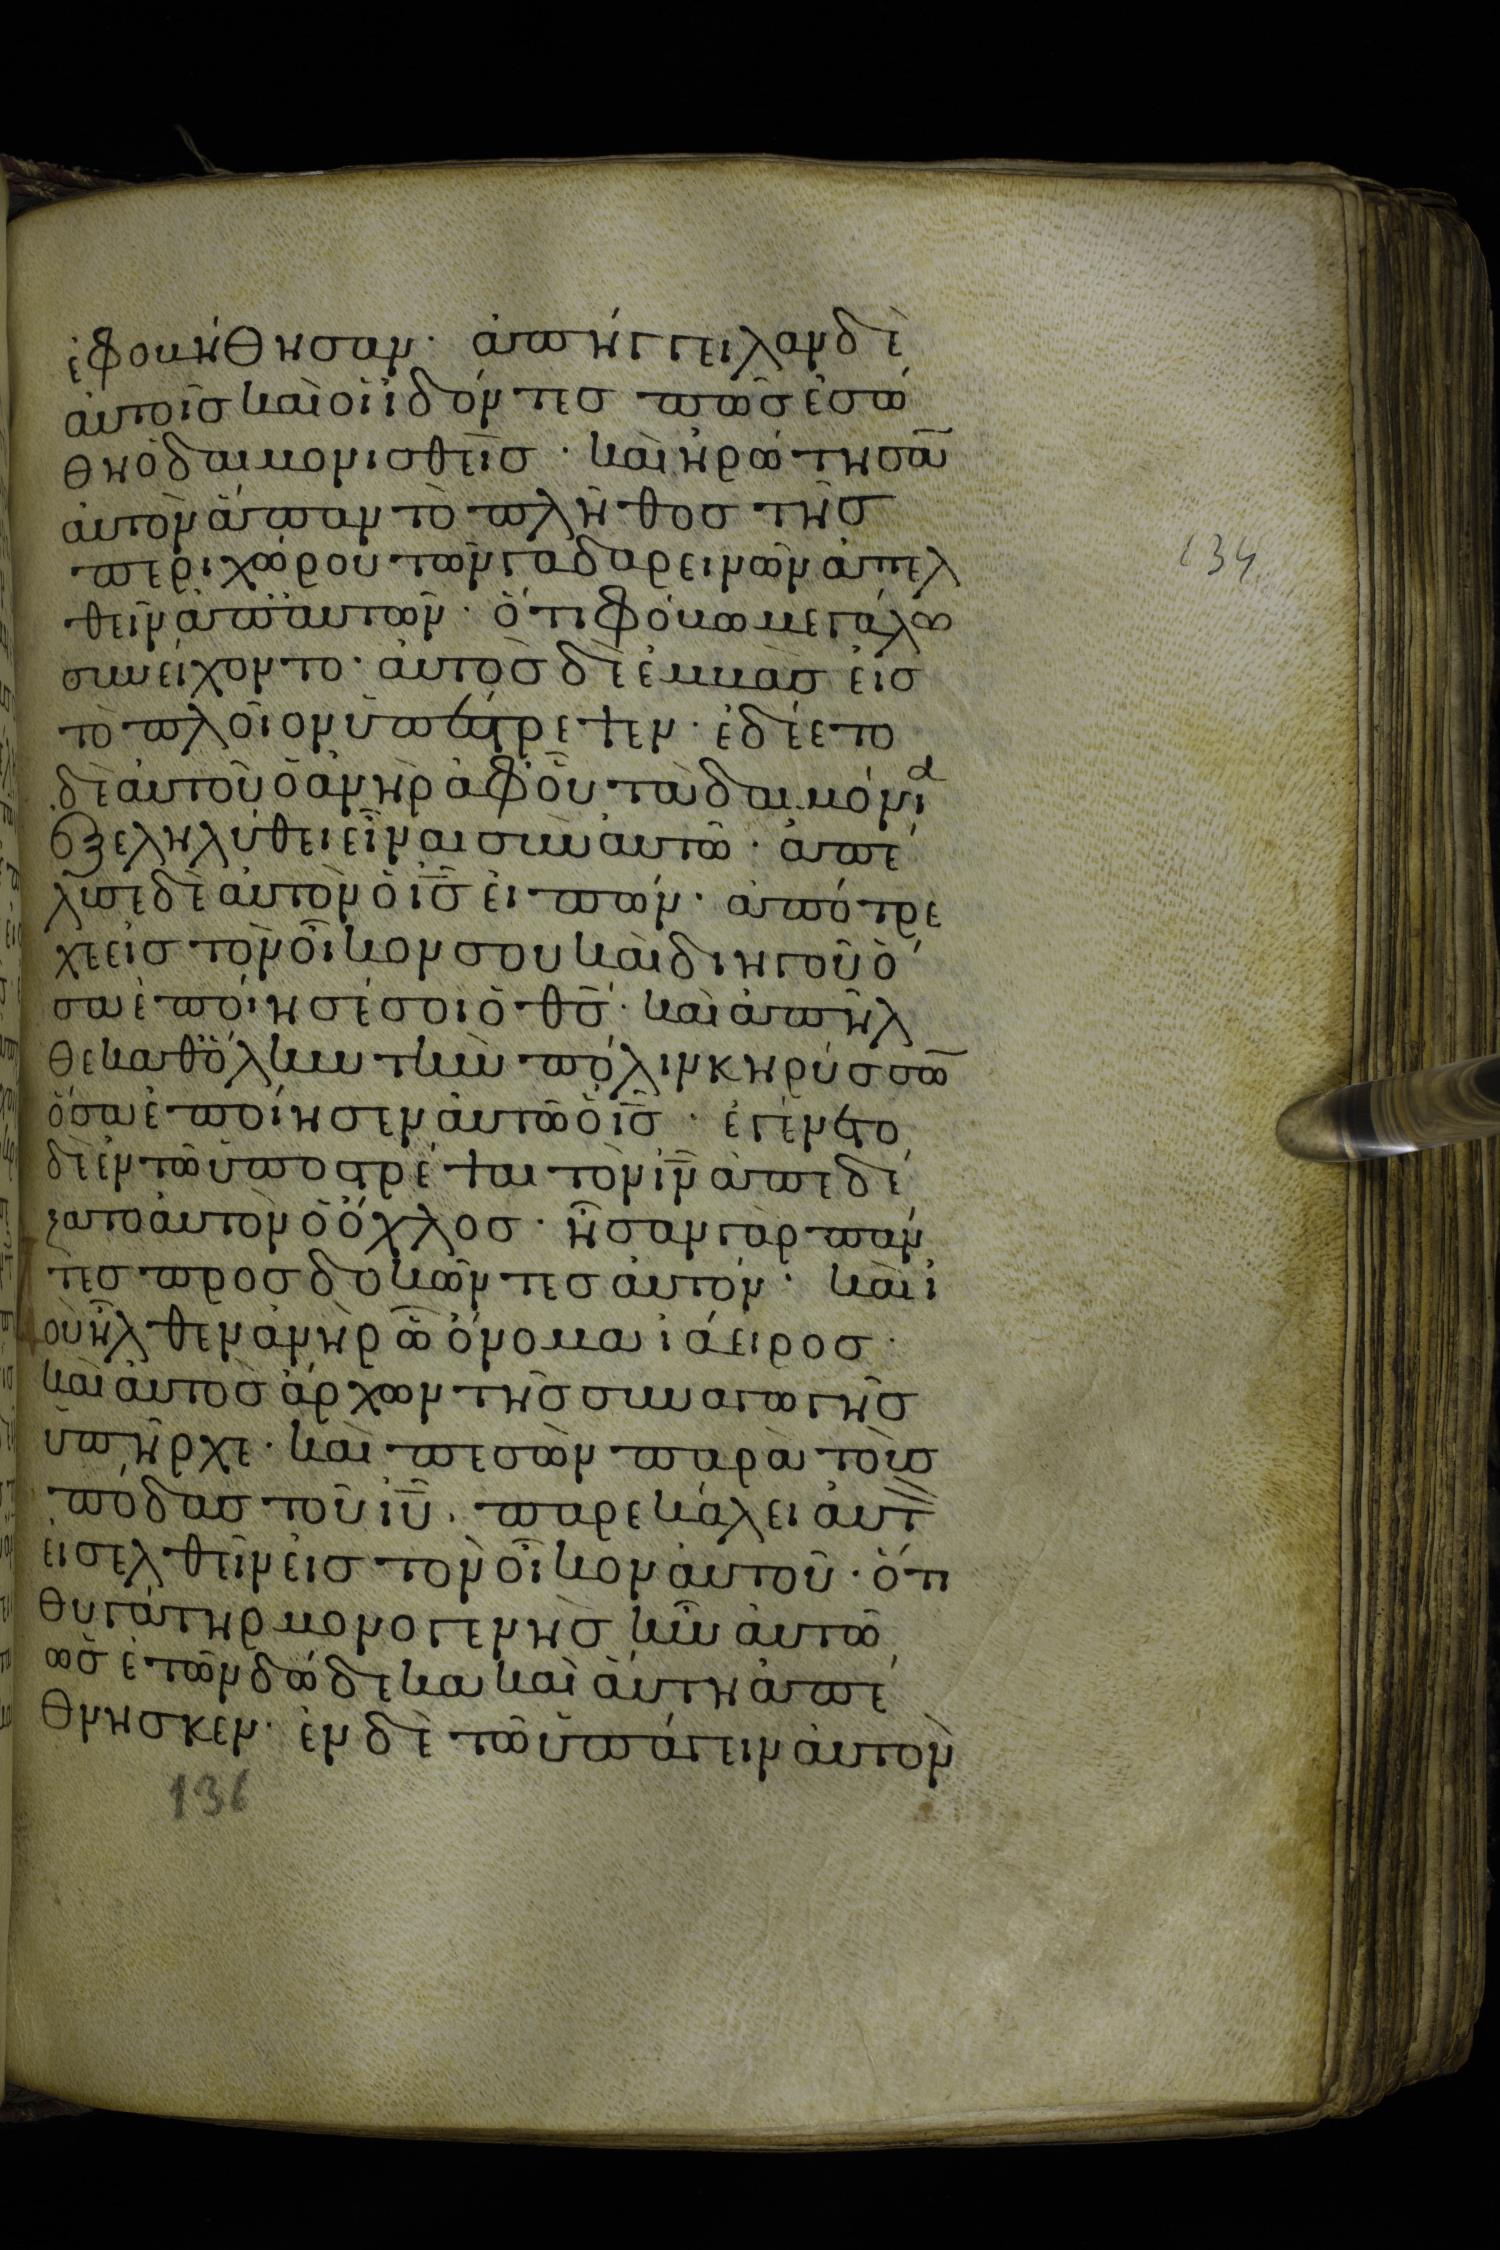 ἐφοβήθησαν· ἀπήγγειλαν δὲ
αὐτοῖς καὶ οἱ ἰδόντες πῶς ἐσώ
θη ὁ δαιμονισθείς· καὶ ἠρώτησᾱ
αὐτὸν ἅπαν τὸ πλῆθος τῆς
περιχώρου τῶν γαδαρεινῶν ἀπελ
θεῖν ἀπ αὐτῶν· ὅτι φόβω μεγάλω
συνείχοντο· αὐτὸς δὲ ἐμβὰς εἰς
τὸ πλοῖον ὑπέστρεψεν· ἐδέετο
δὲ αὐτοῦ ὁ ἀνὴρ ἀφ οὗ τὰ δαιμόνια
ἐξεληλύθει εἶναι σὺν αὐτῶ· ἀπέ
λυσε δὲ αὐτὸν ὁ ις̄ εἰπών· ἀπότρε
χε εἰς τὸν οἶκον σου καὶ διηγοῦ ὅ
σα ἐποίησέ σοι ὁ θς̄· καὶ ἀπῆλ
θε καθ ὅλην τὴν πόλιν κηρύσσω̄
ὅσα ἐποίησεν αὐτῶ ὁ ις̄· ἐγένετο
δὲ ἐν τῶ ὑποστρέψαι τὸν ιν̄ ἀπεδέ
ξατο αὐτὸν ὁ ὄχλος· ἦσαν γὰρ πάν
τες προσδοκῶντες αὐτόν· καὶ ἰ
δοὺ ἦλθεν ἀνὴρ ὧ ὄνομα ἰάειρος·
καὶ αὐτὸς ἄρχων τῆς συναγωγῆς
ὑπῆρχε· καὶ πεσὼν παρὰ τοὺς
πόδας τοῦ ιῡ· παρεκάλει αὐτ
εἰσελθεῖν εἰς τὸν οἶκον αὐτοῦ· ὅτι
θυγάτηρ μονογενὴς ἦν αὐτῶ
ὡς ἐτῶν δώδεκα καὶ αὕτη ἀπέ
θνησκεν· ἐν δὲ τῶ ὑπάγειν αὐτὸν
134
136